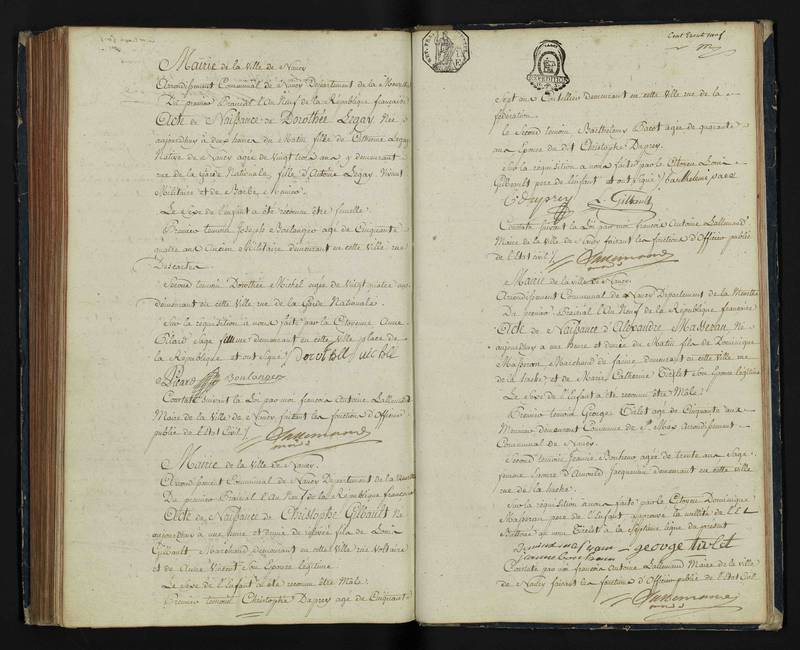 Mairie de la Ville de Nancy
Arrondissement Communal de Nancy Département de la Meurthe
Du premier Prairial l'An Neuf de la République française
Acte de Naissance de Dorothée Legay Née
aujourdhuy à deux heures du Matin fille de Catherine Legay
Native de Nancy agée de Vingt trois ans y demeurant
rue de la Garde Nationale, fille d'Antoine Legay Vivant
Militaire et de Barbe
Le Sexe de l'Enfant a été reconnu être femelle.
Premier temoin Joseph Boulanger agé de Cinquante
quatre ans Ancien Militaire demeurant en cette Ville rue
Descartes
Second temoin Dorothée Michel agée de Vingt quatre ans
demeurant en cette Ville rue de la Garde Nationale.
Sur la requisition à nous faite par la Citoyenne Anne
Picard Sage femme demeurant en cette Ville place de
la République et ont signé /
Picard Boulanger
Constaté suivant la Loi par moi françois Antoine Lallemand
Maire de la Ville de Nancy faisant les fonctions d'Officier
public de l'Etat Civil /. Lallemand
Mairie de la Ville de Nancy.
Arrondissement Communal de Nancy Departement de la Meurthe
Du premier Prairial l'An Neuf de la République française
Acte de Naissance de Christophe Gibault Né
aujourdhuy à une heure et demie de relevée fils de Louis
Gibault Marchand demeurant en cette Ville rue Voltaire
et de Anne Son Epouse legitime.
Le Sexe de l'Enfant a été reconnu être Mâle.
Premier temoin Christophe Duprey agé de Cinquante
Cent Trente neuf
Sept ans Coutellier demeurant en cette Ville rue de la
fédération.
le Second temoin Barthelemy Pacot agée de quarante
ans Epouse du dit Christophe Duprey.
Sur la requisition à nous faite par le Citoyen Louis
Gibault pere de l'enfant et ont signé /.
C Duprey L. Gibault
Constaté suivant la Loi par moi françois Antoine Lallemand
Maire de la Ville de Nancy faisant les fonctions d'Officier public
de l'Etat civil /. Lallemand
Mairie de la Ville de Nancy.
Arrondissement Communal de Nancy Departement de la Meurthe
Du premier Prairial l'An Neuf de la République française
Acte de Naissance d'Alexandre Masseran Né
aujourdhuy à une heure et demie du Matin fils de Dominique
Masseran, Marchand de faine demeurant en cette Ville rue
de la hache et de Marie Catherine Tielet Son Epouse legitime
Le Sexe de l'Enfant a été reconnu être Mâle.
Premier temoin George Tielet agé de Cinquante ans
demeurant Commune de St. Max Arrondissement
Communal de Nancy.
Second temoin agée de trente ans Sage
femme Epouse d'Arnould Jacquemin demeurant en cette Ville
rue de la hache.
Sur la requisition à nous faite par le Citoyen Dominique
Masseran pere de l'Enfant
au nom Tielet à la Septieme ligne du présent
george tielet
Constaté par moi françois Antoine Lallemand Maire de la Ville
de Nancy faisant les fonctions d'Officier public de l'Etat Civil.
Lallemand